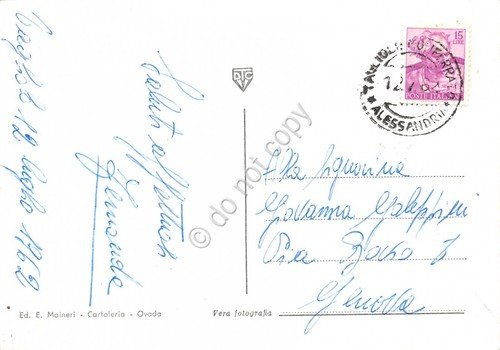 Tagliolo 12 luglio 1962
Saluti affettuosi
Fernanda
Ed. E. Maineri - Cartoleria - Ovada
Vera fotografia
15
LIRE
POSTE ITALIANE
TAGLIOLO MONFERRATO
12.7.62
ALESSANDRIA
Alla Signorina
Giovanna Galeppini
Via Bosio 7
Genova
© do not copy